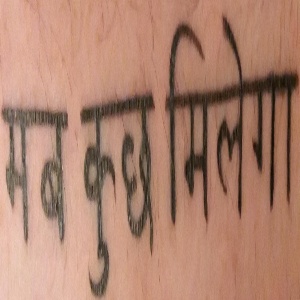 सब कुछ मिलेगा